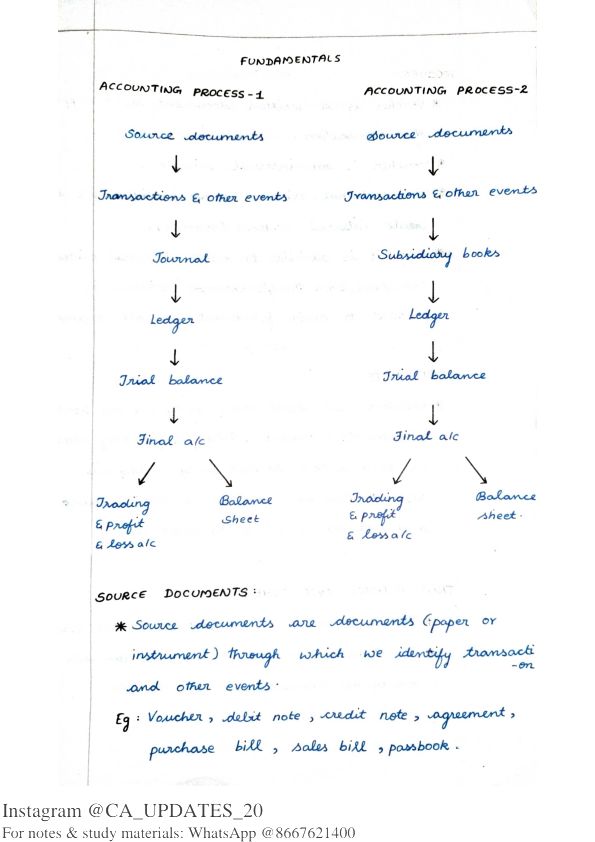 FUNDAMENTALS
ACCOUNTING PROCESS-1
Source documents
Transactions & other events
Journal
Ledger
Trial balance
Final a/c
Trading
& profit
& loss a/c
Balance
sheet
ACCOUNTING PROCESS-2
Source documents
Transactions & other events
Subsidiary books
Ledger
Trial balance
Final a/c
Trading
& profit
& loss a/c
Balance
sheet.
SOURCE DOCUMENTS:
* Source documents are documents (paper or
instrument) through which we identify transacti
-on
and other events.
Eg: Voucher, debit note, credit note, agreement,
purchase bill, sales bill, passbook.
Instagram @CA_UPDATES_20
For notes & study materials: WhatsApp @8667621400